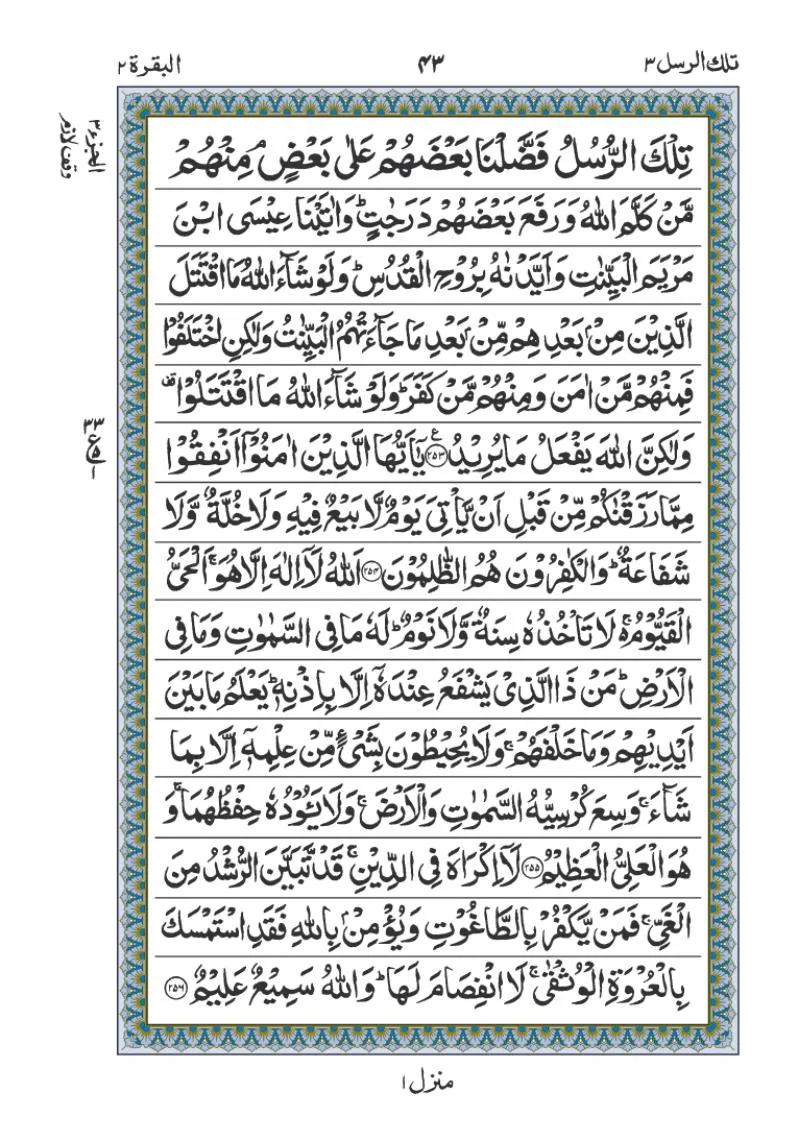 تلك الرسل ٣
٤٣
البقرة ٢
الجزء ٣
وقف لازم
تِلْكَ الرُّسُلُ فَضَّلْنَا بَعْضَهُمْ عَلٰى بَعْضٍ ۘ مِنْهُمْ
مَّنْ كَلَّمَ اللّٰهُ وَرَفَعَ بَعْضَهُمْ دَرَجٰتٍ ؕ وَاٰتَيْنَا عِيْسَى ابْنَ
مَرْيَمَ الْبَيِّنٰتِ وَاَيَّدْنٰهُ بِرُوْحِ الْقُدُسِ ؕ وَلَوْ شَآءَ اللّٰهُ مَا اقْتَتَلَ
الَّذِيْنَ مِنْۢ بَعْدِهِمْ مِّنْۢ بَعْدِ مَا جَآءَتْهُمُ الْبَيِّنٰتُ وَلٰكِنِ اخْتَلَفُوْا
فَمِنْهُمْ مَّنْ اٰمَنَ وَمِنْهُمْ مَّنْ كَفَرَ ؕ وَلَوْ شَآءَ اللّٰهُ مَا اقْتَتَلُوْا ۟
وَلٰكِنَّ اللّٰهَ يَفْعَلُ مَا يُرِيْدُ ﴿۲۵۳﴾ ع يٰۤاَيُّهَا الَّذِيْنَ اٰمَنُوْۤا اَنْفِقُوْا
٣٣
ع
۵
١
مِمَّا رَزَقْنٰكُمْ مِّنْ قَبْلِ اَنْ يَّاْتِيَ يَوْمٌ لَّا بَيْعٌ فِيْهِ وَلَا خُلَّةٌ وَّلَا
شَفَاعَةٌ ؕ وَالْكٰفِرُوْنَ هُمُ الظّٰلِمُوْنَ ﴿۲۵۴﴾ اَللّٰهُ لَاۤ اِلٰهَ اِلَّا هُوَ ۚ اَلْحَيُّ
الْقَيُّوْمُ ۚ۬ لَا تَاْخُذُهٗ سِنَةٌ وَّلَا نَوْمٌ ؕ لَهٗ مَا فِى السَّمٰوٰتِ وَمَا فِى
الْاَرْضِ ؕ مَنْ ذَا الَّذِىْ يَشْفَعُ عِنْدَهٗۤ اِلَّا بِاِذْنِهٖ ؕ يَعْلَمُ مَا بَيْنَ
اَيْدِيْهِمْ وَمَا خَلْفَهُمْ ۚ وَلَا يُحِيْطُوْنَ بِشَىْءٍ مِّنْ عِلْمِهٖۤ اِلَّا بِمَا
شَآءَ ۚ وَسِعَ كُرْسِيُّهُ السَّمٰوٰتِ وَالْاَرْضَ ۚ وَلَا يَـُٔوْدُهٗ حِفْظُهُمَا ۚ وَ
هُوَ الْعَلِىُّ الْعَظِيْمُ ﴿۲۵۵﴾ لَاۤ اِكْرَاهَ فِى الدِّيْنِ ۚ قَدْ تَّبَيَّنَ الرُّشْدُ مِنَ
الْغَىِّ ۚ فَمَنْ يَّكْفُرْ بِالطَّاغُوْتِ وَيُؤْمِنْۢ بِاللّٰهِ فَقَدِ اسْتَمْسَكَ
بِالْعُرْوَةِ الْوُثْقٰى ۚ لَا انْفِصَامَ لَهَا ؕ وَاللّٰهُ سَمِيْعٌ عَلِيْمٌ ﴿۲۵۶﴾
منزل ١